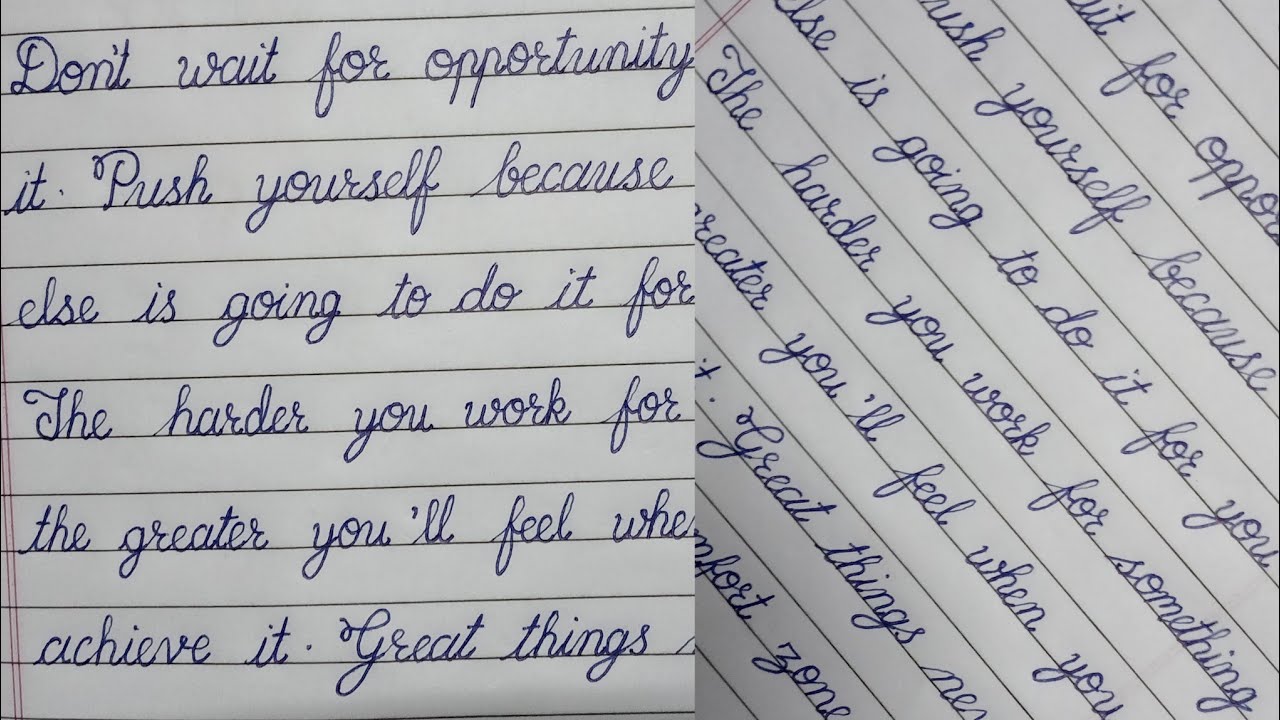 Don't wait for opportunity
it. Push yourself because
else is going to do it for
The harder you work for
the greater you'll feel whe
achieve it. Great things
for oppor
push yourself because
else is going to do it for you
The harder you work for something
greater you'll feel when you
it. Great things ne
mfort zone